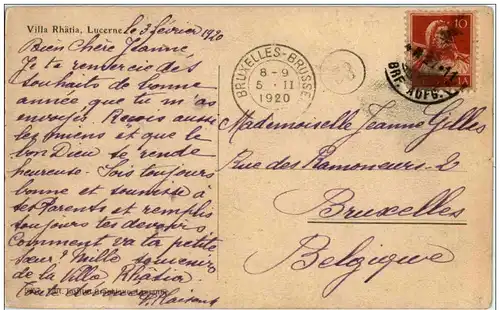 Villa Rhätia, Lucerne le 3 février 1920
Bien Chère Jeanne,
Je te remercie des
souhaits de bonne
année que tu m'as
envoyer. Reçois aussi
les miens et que le
bon Dieu te rende
heureuse. Sois toujours
bonne et soumise à
tes Parents et remplis
toujours tes devoirs
Comment va ta petite
sœur? Mille souvenirs
de la Villa Rhätia
BRUXELLES-BRUSSEL
8-9
5 · II
1920
10
BRF. AUFG.
Mademoiselle Jeanne Gilles
Rue des Ramoneurs-2
Bruxelles
Belgique